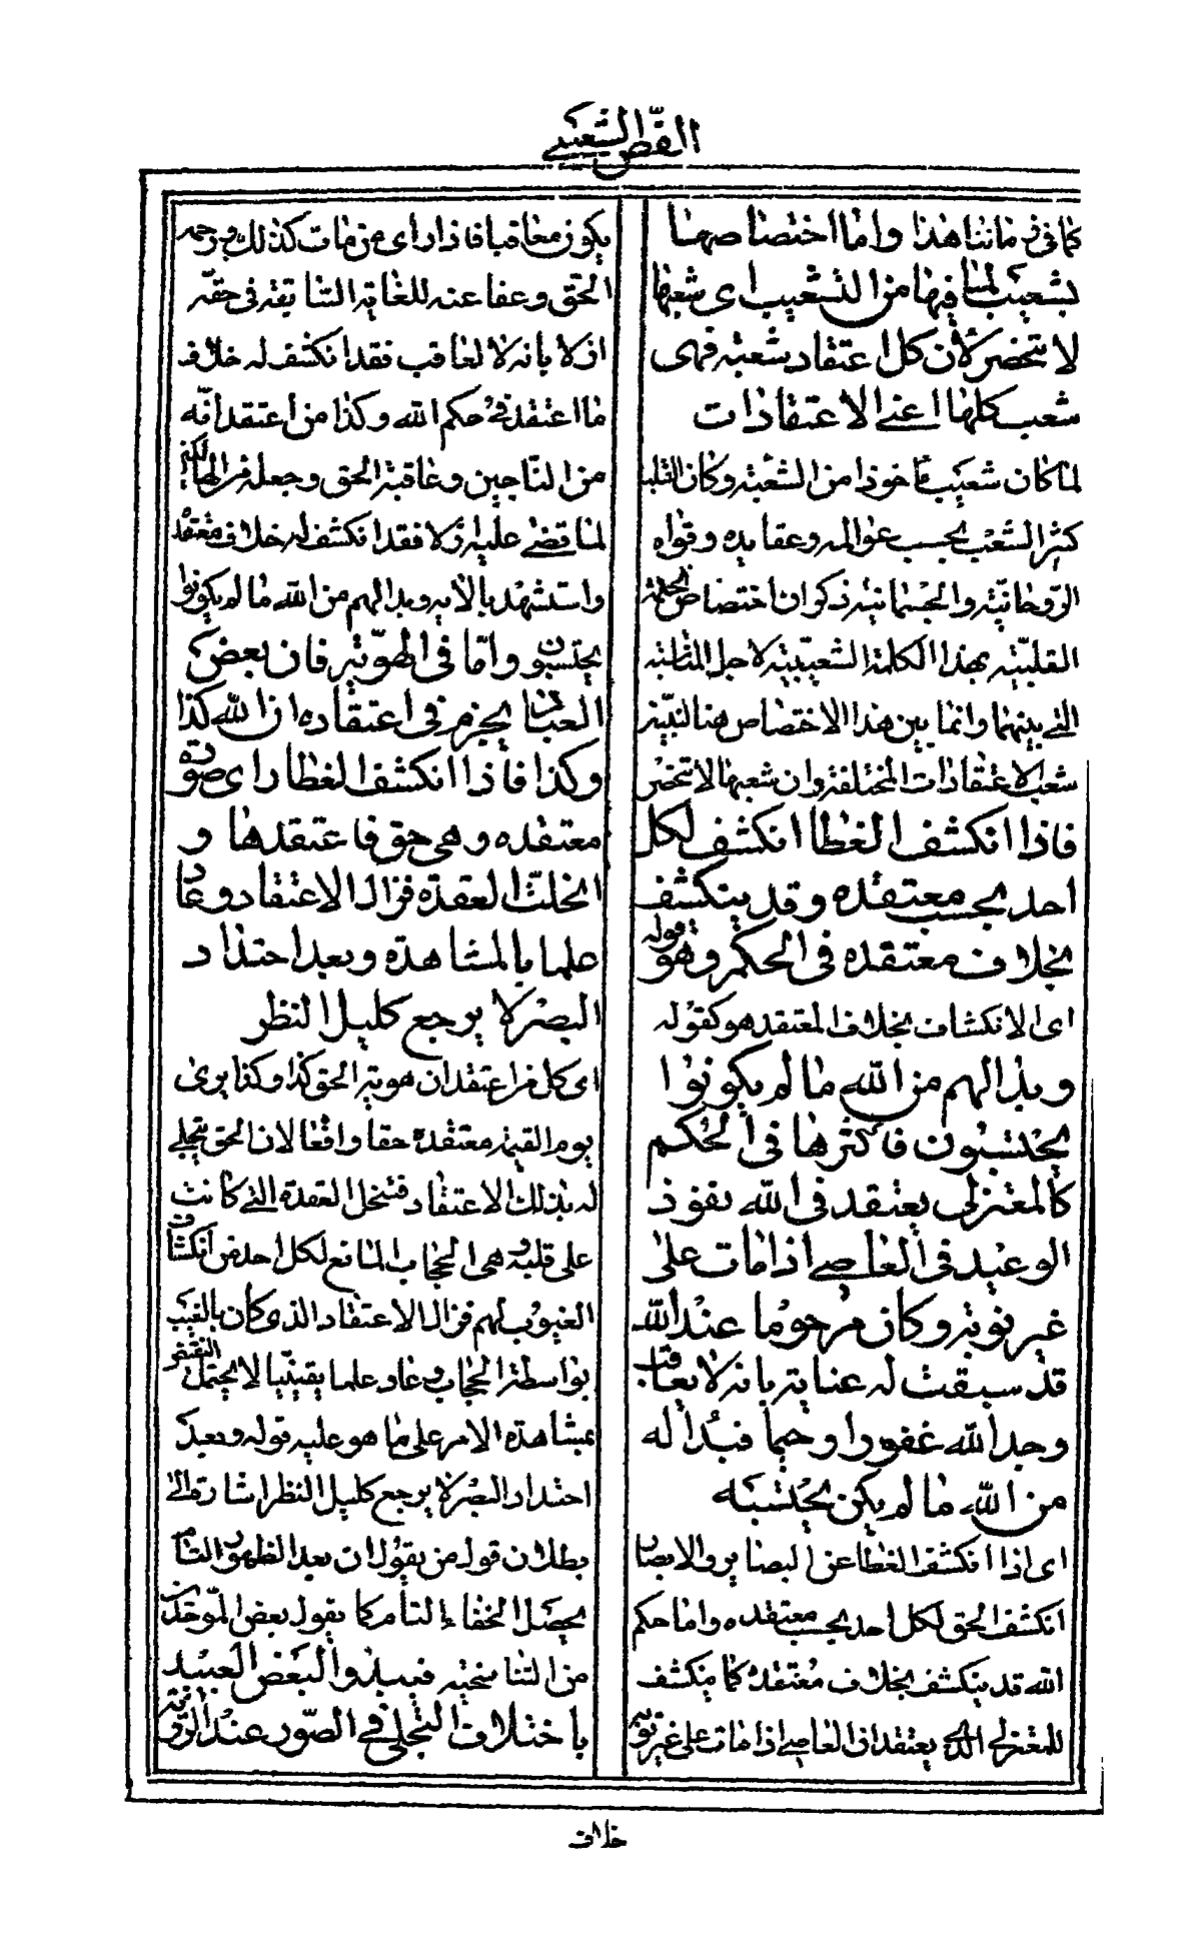 الفص الشعيبي
كما فی زماننا هذا واما اختصاصها
بشعیب لما فیها من التشعیب ای شعبها
لا تنحصر لان کل اعتقاد شعبة فهی
شعب کلها اعنی الاعتقادات
لما کان شعیب مأخوذا من الشعبة وکان القلب
کثیر الشعب بحسب عوالمه وعقایده وقواه
الروحانیة والجسمانیة ذکر ان اختصاص الحکمة
القلبیة بهذا الکلمة الشعیبیة لاجل المناسبة
التی بینهما وانما بین هذا الاختصاص هنا لتبیین
شعب الاعتقادات المختلفة وان شعبها لا تنحصر
فاذا انکشف الغطا انکشف لکل
احد بحسب معتقده وقد ینکشف
بخلاف معتقده فی الحکم وهو قوله
ای الانکشاف بخلاف المعتقد هو کقوله
وبدا لهم من الله ما لم یکونوا
یحتسبون فاکثرها فی الحکم
کالمعتزلی یعتقد فی الله نفوذ
الوعید فی العاصی اذا مات علی
غیر توبة وکان مرحوما عند الله
قد سبقت له عنایة بانه لا یعاقب
وجد الله غفورا رحیما فبدا له
من الله ما لم یکن یحتسبه
ای اذا انکشف الغطا عن البصایر والابصار
انکشف الحق لکل احد بحسب معتقده واما حکم
الله قد ینکشف بخلاف معتقده کما ینکشف
للمعتزلی الذی یعتقد ان العاصی اذا مات علی غیر توبة
یکون معاقبا فاذا رای من مات کذلک ورحمه
الحق وعفا عنه للعنایة السابقة فی حقه
ازلا بانه لا یعاقب فقد انکشف له خلاف
ما اعتقد فی حکم الله وکذا من اعتقد انه
من الناجین وعاقبه الحق وجعله من الهالکین
لما قضی علیه ازلا فقد انکشف له خلاف معتقده
واستشهد بالایه وبدا لهم من الله ما لم یکونوا
یحتسبون واما فی الهویة فان بعض
العباد یجزم فی اعتقاده ان الله کذا
وکذا فاذا انکشف الغطا رای صورة
معتقده وهی حق فاعتقدها و
انحلت العقدة فزال الاعتقاد وعاد
علما بالمشاهدة وبعد احتداد
البصر لا یرجع کلیل النظر
ای کل من اعتقد ان هویة الحق کذا وکذا یری
یوم القیمة معتقده حقا واقعا لان الحق یتجلی
له بذلک الاعتقاد فتنحل العقدة التی کانت
علی قلبه وهی الحجاب المانع لکل احد من انکشاف
الغیوب لهم فزال الاعتقاد الذی کان بالغیب
بواسطة الحجاب وعاد علما یقینیا لا یحتمل النقیض
بمشاهدة الامر علی ما هو علیه قوله وبعد
احتداد البصر لا یرجع کلیل النظر اشارة الی
بطلان قول من یقول ان بعد الظهور التام
یحصل الخفاء التام کما یقول بعض الموحدین
من التناسخیه فیبدو البعض العبید
باختلاف التجلی فی الصور عند الرؤیة
خلاف